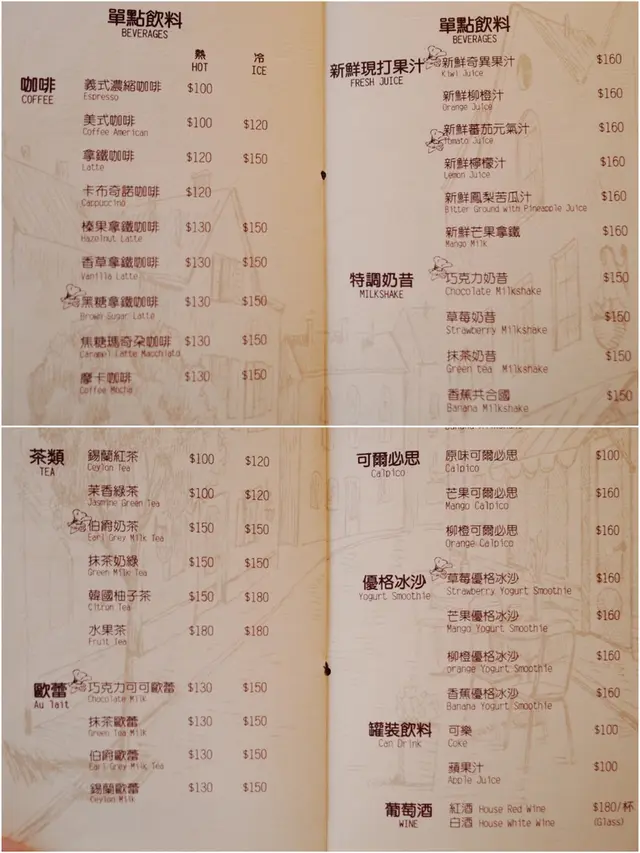 單點飲料
BEVERAGES
熱 冷
HOT ICE
咖啡
COFFEE
義式濃縮咖啡 $100
Espresso
美式咖啡 $100 $120
Coffee American
拿鐵咖啡 $120 $150
Latte
卡布奇諾咖啡 $120
Cappuccino
榛果拿鐵咖啡 $130 $150
Hazelnut Latte
香草拿鐵咖啡 $130 $150
Vanilla Latte
黑糖拿鐵咖啡 $130 $150
Brown Sugar Latte
焦糖瑪奇朵咖啡 $130 $150
Caramel Latte Macchiato
摩卡咖啡 $130 $150
Coffee Mocha
單點飲料
BEVERAGES
新鮮現打果汁
FRESH JUICE
新鮮奇異果汁 $160
Kiwi Juice
新鮮柳橙汁 $160
Orange Juice
新鮮蕃茄元氣汁 $160
Tomato Juice
新鮮檸檬汁 $160
Lemon Juice
新鮮鳳梨苦瓜汁 $160
Bitter Ground with Pineapple Juice
新鮮芒果拿鐵 $160
Mango Milk
特調奶昔
MILKSHAKE
巧克力奶昔 $150
Chocolate Milkshake
草莓奶昔 $150
Strawberry Milkshake
抹茶奶昔 $150
Green tea Milkshake
香蕉共合國 $150
Banana Milkshake
茶類
TEA
錫蘭紅茶 $100 $120
Ceylon Tea
茉香綠茶 $100 $120
Jasmine Green Tea
伯爵奶茶 $150 $150
Earl Grey Milk Tea
抹茶奶綠 $150 $150
Green Milk Tea
韓國柚子茶 $150 $180
Citron Tea
水果茶 $180 $180
Fruit Tea
歐蕾
Au lait
巧克力可可歐蕾 $130 $150
Chocolate Milk
抹茶歐蕾 $130 $150
Green Tea Milk
伯爵歐蕾 $130 $150
Earl Grey Milk Tea
錫蘭歐蕾 $130 $150
Ceylon Milk
Banana Milkshake
可爾必思
Calpico
原味可爾必思 $100
Calpico
芒果可爾必思 $160
Mango Calpico
柳橙可爾必思 $160
Orange Calpico
優格冰沙
Yogurt Smoothie
草莓優格冰沙 $160
Strawberry Yogurt Smoothie
芒果優格冰沙 $160
Mango Yogurt Smoothie
柳橙優格冰沙 $160
orange Yogurt Smoothie
香蕉優格冰沙 $160
Banana Yogurt Smoothie
罐裝飲料
Can Drink
可樂 $100
Coke
蘋果汁 $100
Apple Juice
葡萄酒
WINE
紅酒 House Red Wine $180/杯
白酒 House White Wine (Glass)